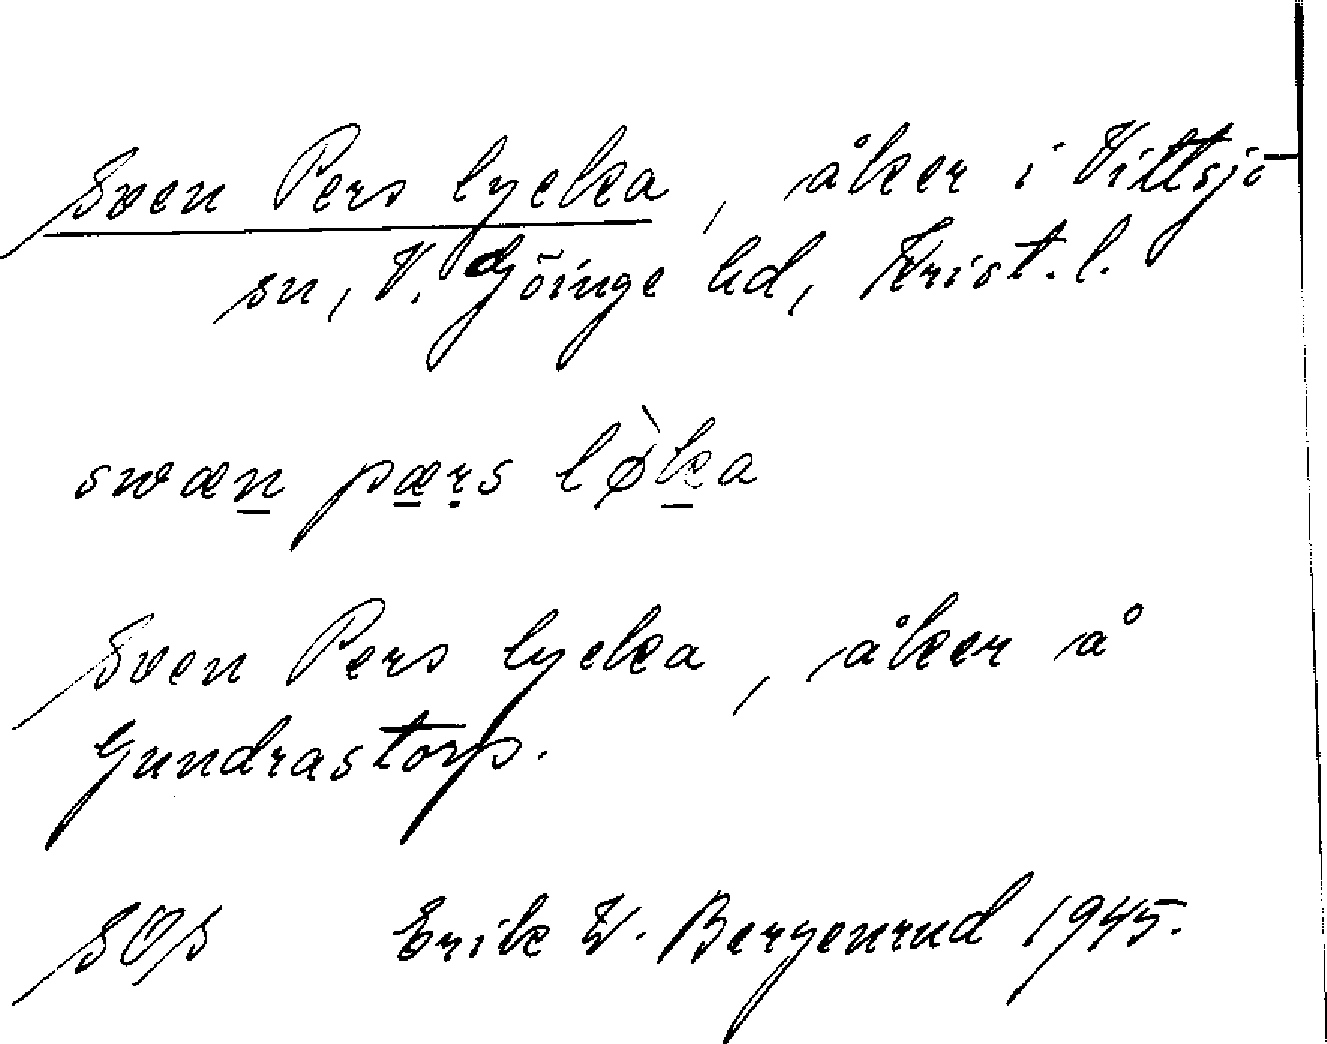 Sven Pers lycka, åker i Vittsjö
sn, V. Göinge hd, Krist. l.
swæn pærs lø̀ka
Sven Pers lycka, åker å
Gundrastorp.
SOS Erik W. Bergenrud 1945.